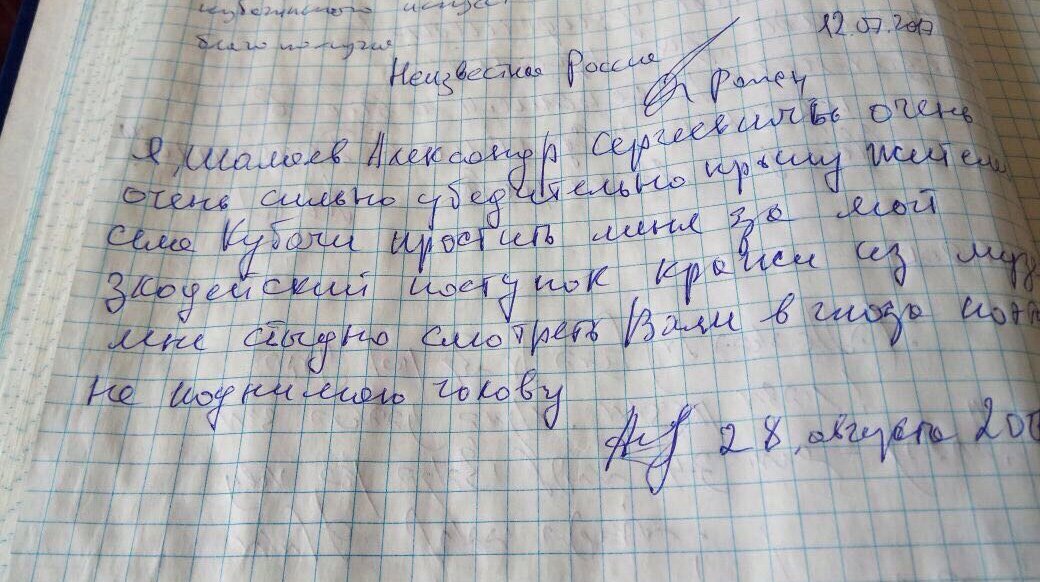 благополучия
12.07.2017
Неизвестная Россия
Роман
Я, Шамаев Александр Сергеевичь очень
очень сильно убедительно прашу жители
села Кубачи простить меня за мой
злодейский поступок кражи из муз
мне стыдно смотреть Вам в глаза
не поднимаю голову
28, августа 201